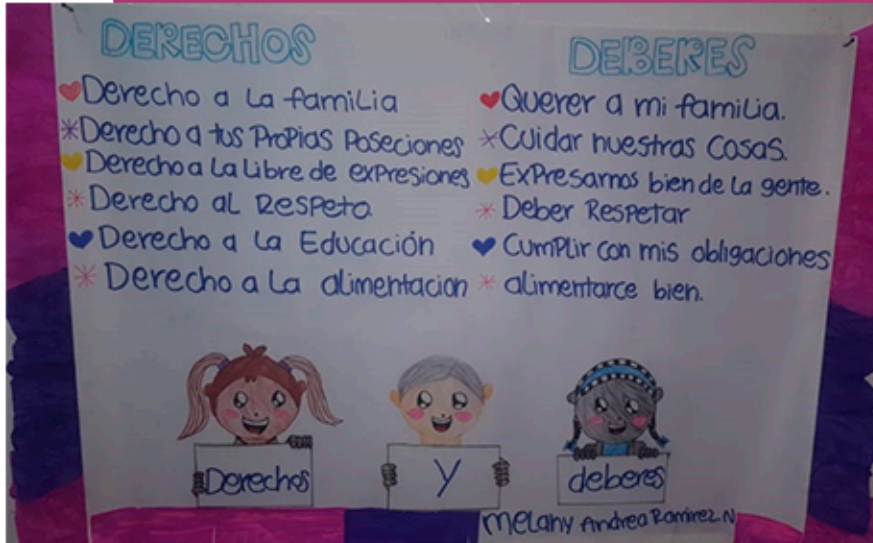 DERECHOS
Derecho a la familia
Derecho a tus Propias Poseciones
Derecho a la Libre de expresiones
Derecho al Respeto.
Derecho a la Educación
Derecho a la alimentacion
DEBERES
Querer a mi familia.
Cuidar nuestras cosas.
Expresarnos bien de la gente.
Deber Respetar
Cumplir con mis obligaciones
alimentarce bien.
Derechos
y
deberes
Melany Andrea Ramirez.N